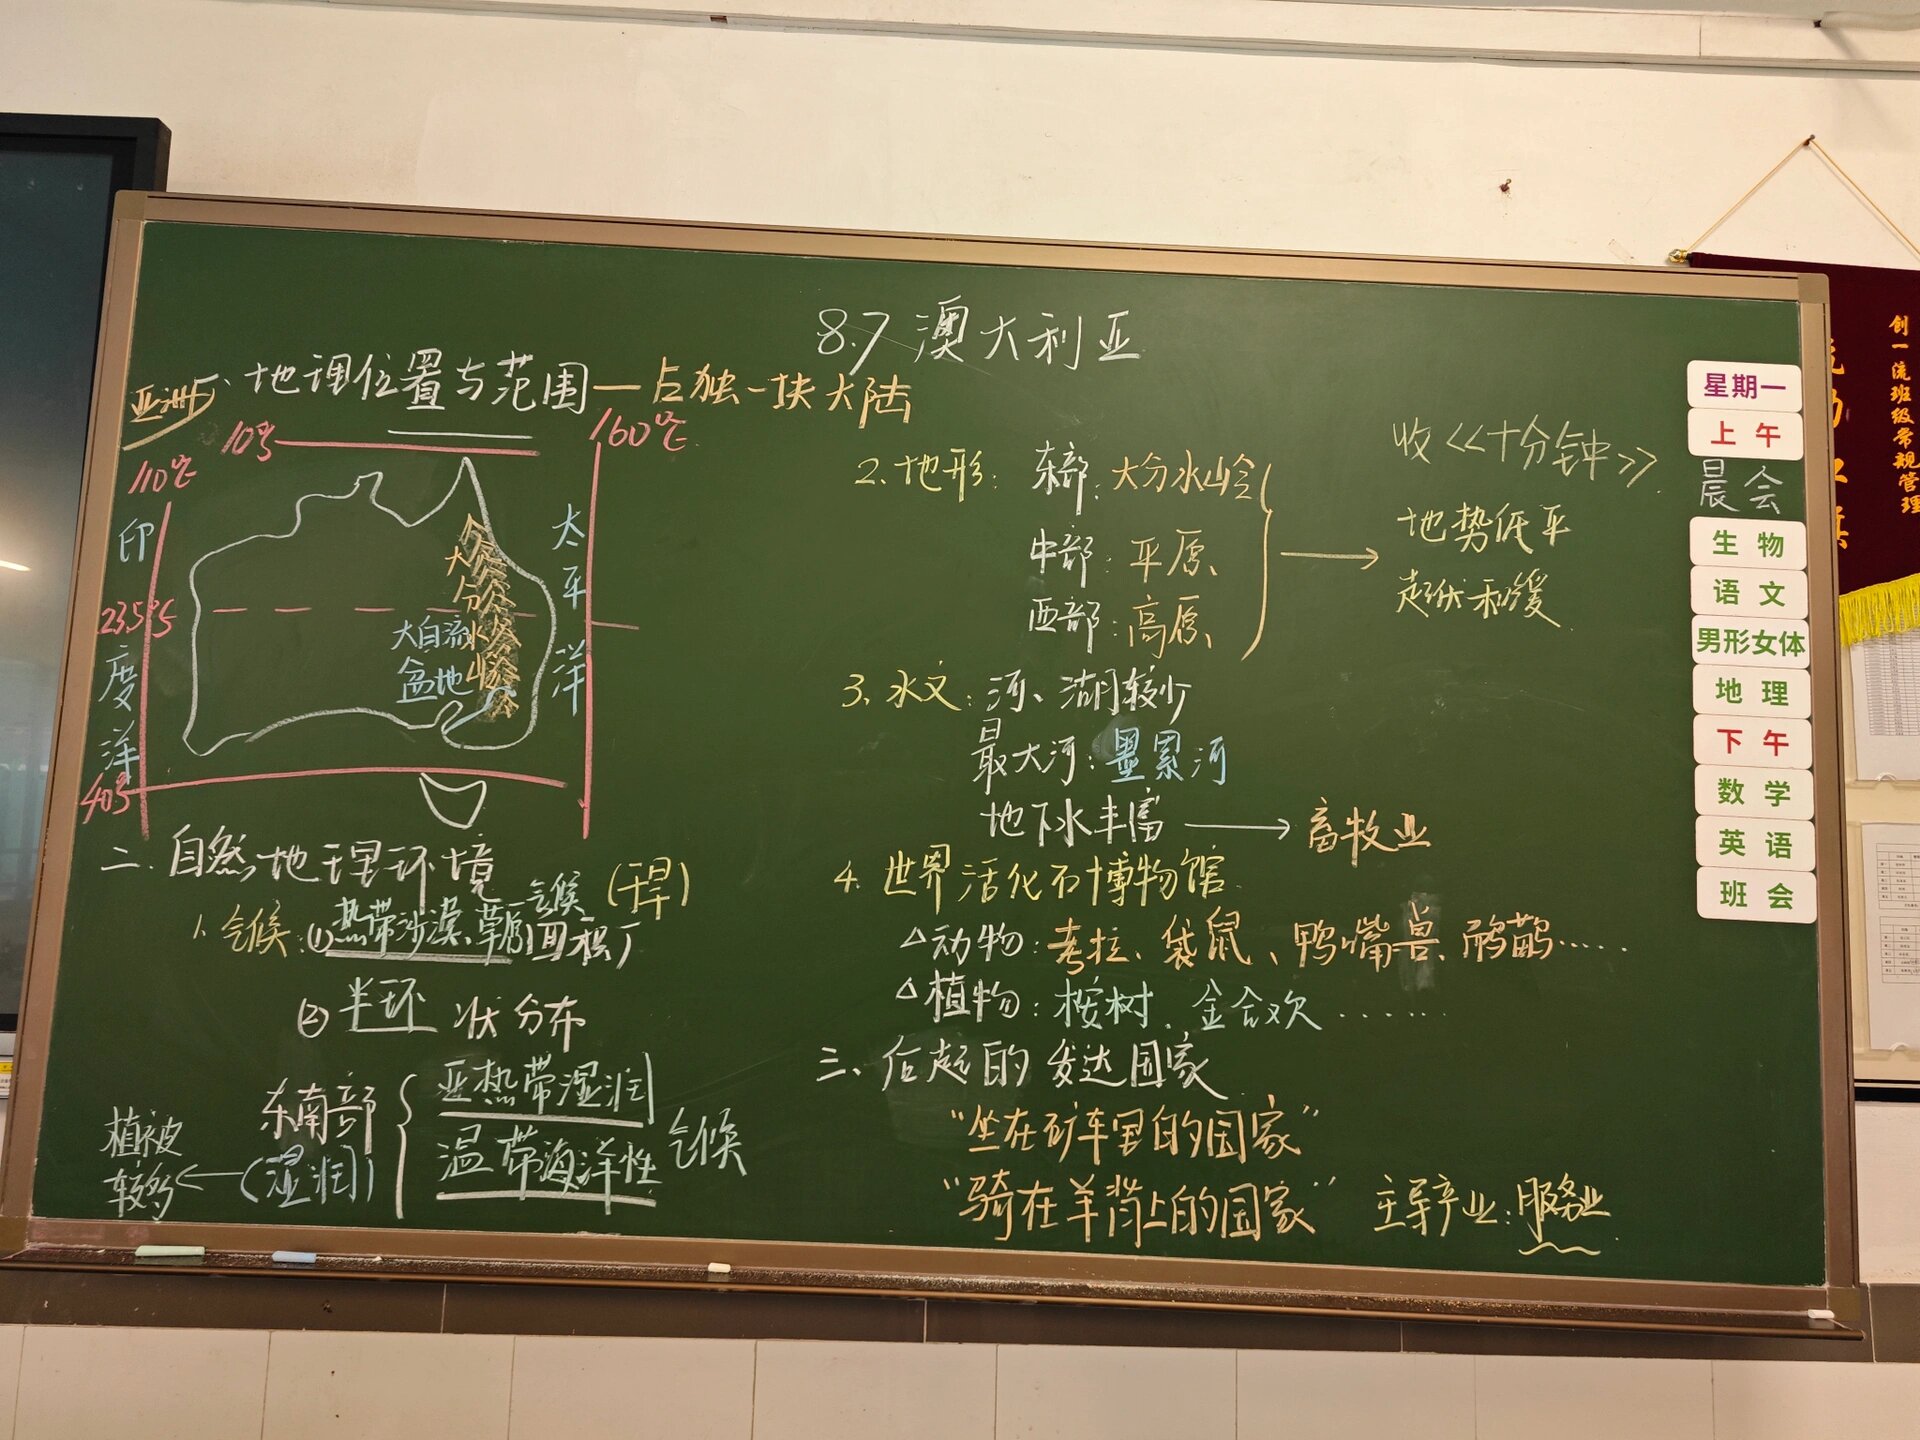 8.7 澳大利亚
地理位置与范围—占独一块大陆
10°S
160°E
110°E
印度洋
太平洋
大分水岭
23.5°S
大自流
盆地
40°S
二.自然地理环境
1.气候:①热带沙漠、草原气候面积广(干旱)
②半环状分布
东南部
(湿润)
亚热带湿润
温带海洋性
气候
植被
较多
2.地形:东部:大分水岭
中部:平原
西部:高原
地势低平
起伏和缓
收《十分钟》
3.水文:河、湖较少
最大河:墨累河
地下水丰富→畜牧业
4.世界活化石博物馆
△动物:考拉、袋鼠、鸭嘴兽、鸸鹋……
△植物:桉树、金合欢……
三、后起的发达国家
“坐在矿车里的国家”
“骑在羊背上的国家”
主导产业:服务业
星期一
上午
晨会
生物
语文
男形女体
地理
下午
数学
英语
班会
创一流班级常规管理